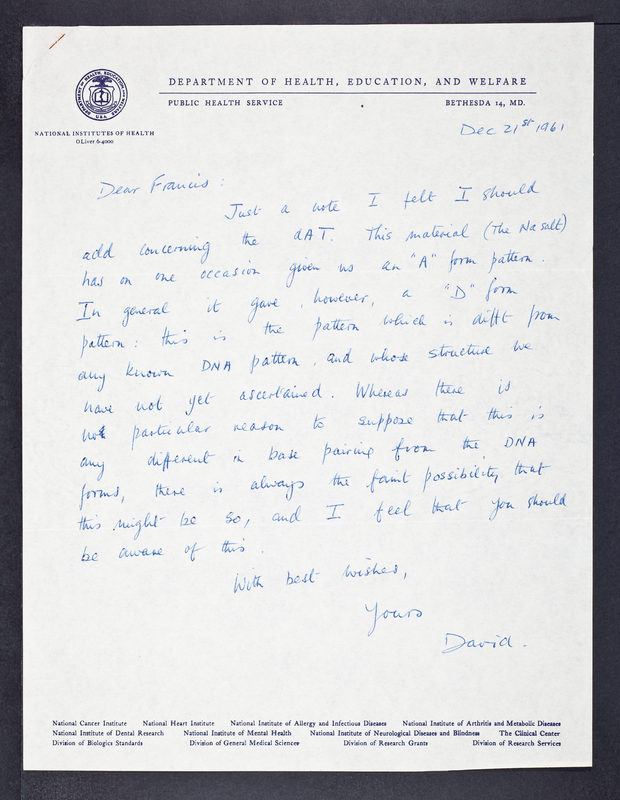 DEPARTMENT OF HEALTH, EDUCATION, AND WELFARE
PUBLIC HEALTH SERVICE BETHESDA 14, MD.
DEPARTMENT OF HEALTH, EDUCATION, AND WELFARE
USA
NATIONAL INSTITUTES OF HEALTH
OLiver 6-4000
Dec 21st 1961
Dear Francis:
Just a note I felt I should
add concerning the dAT. This material (The Na salt)
has on one occasion given us an "A" form pattern.
In general it gave, however, a "D" form
pattern: this is the pattern which is difft from
any known DNA pattern, and whose structure we
have not yet ascertained. Whereas there is
not particular reason to suppose that this is
any different in base pairing from the DNA
forms, there is always the faint possibility that
this might be so, and I feel that you should
be aware of this.
With best wishes,
Yours
David.
National Cancer Institute National Heart Institute National Institute of Allergy and Infectious Diseases National Institute of Arthritis and Metabolic Diseases
National Institute of Dental Research National Institute of Mental Health National Institute of Neurological Diseases and Blindness The Clinical Center
Division of Biologics Standards Division of General Medical Sciences Division of Research Grants Division of Research Services